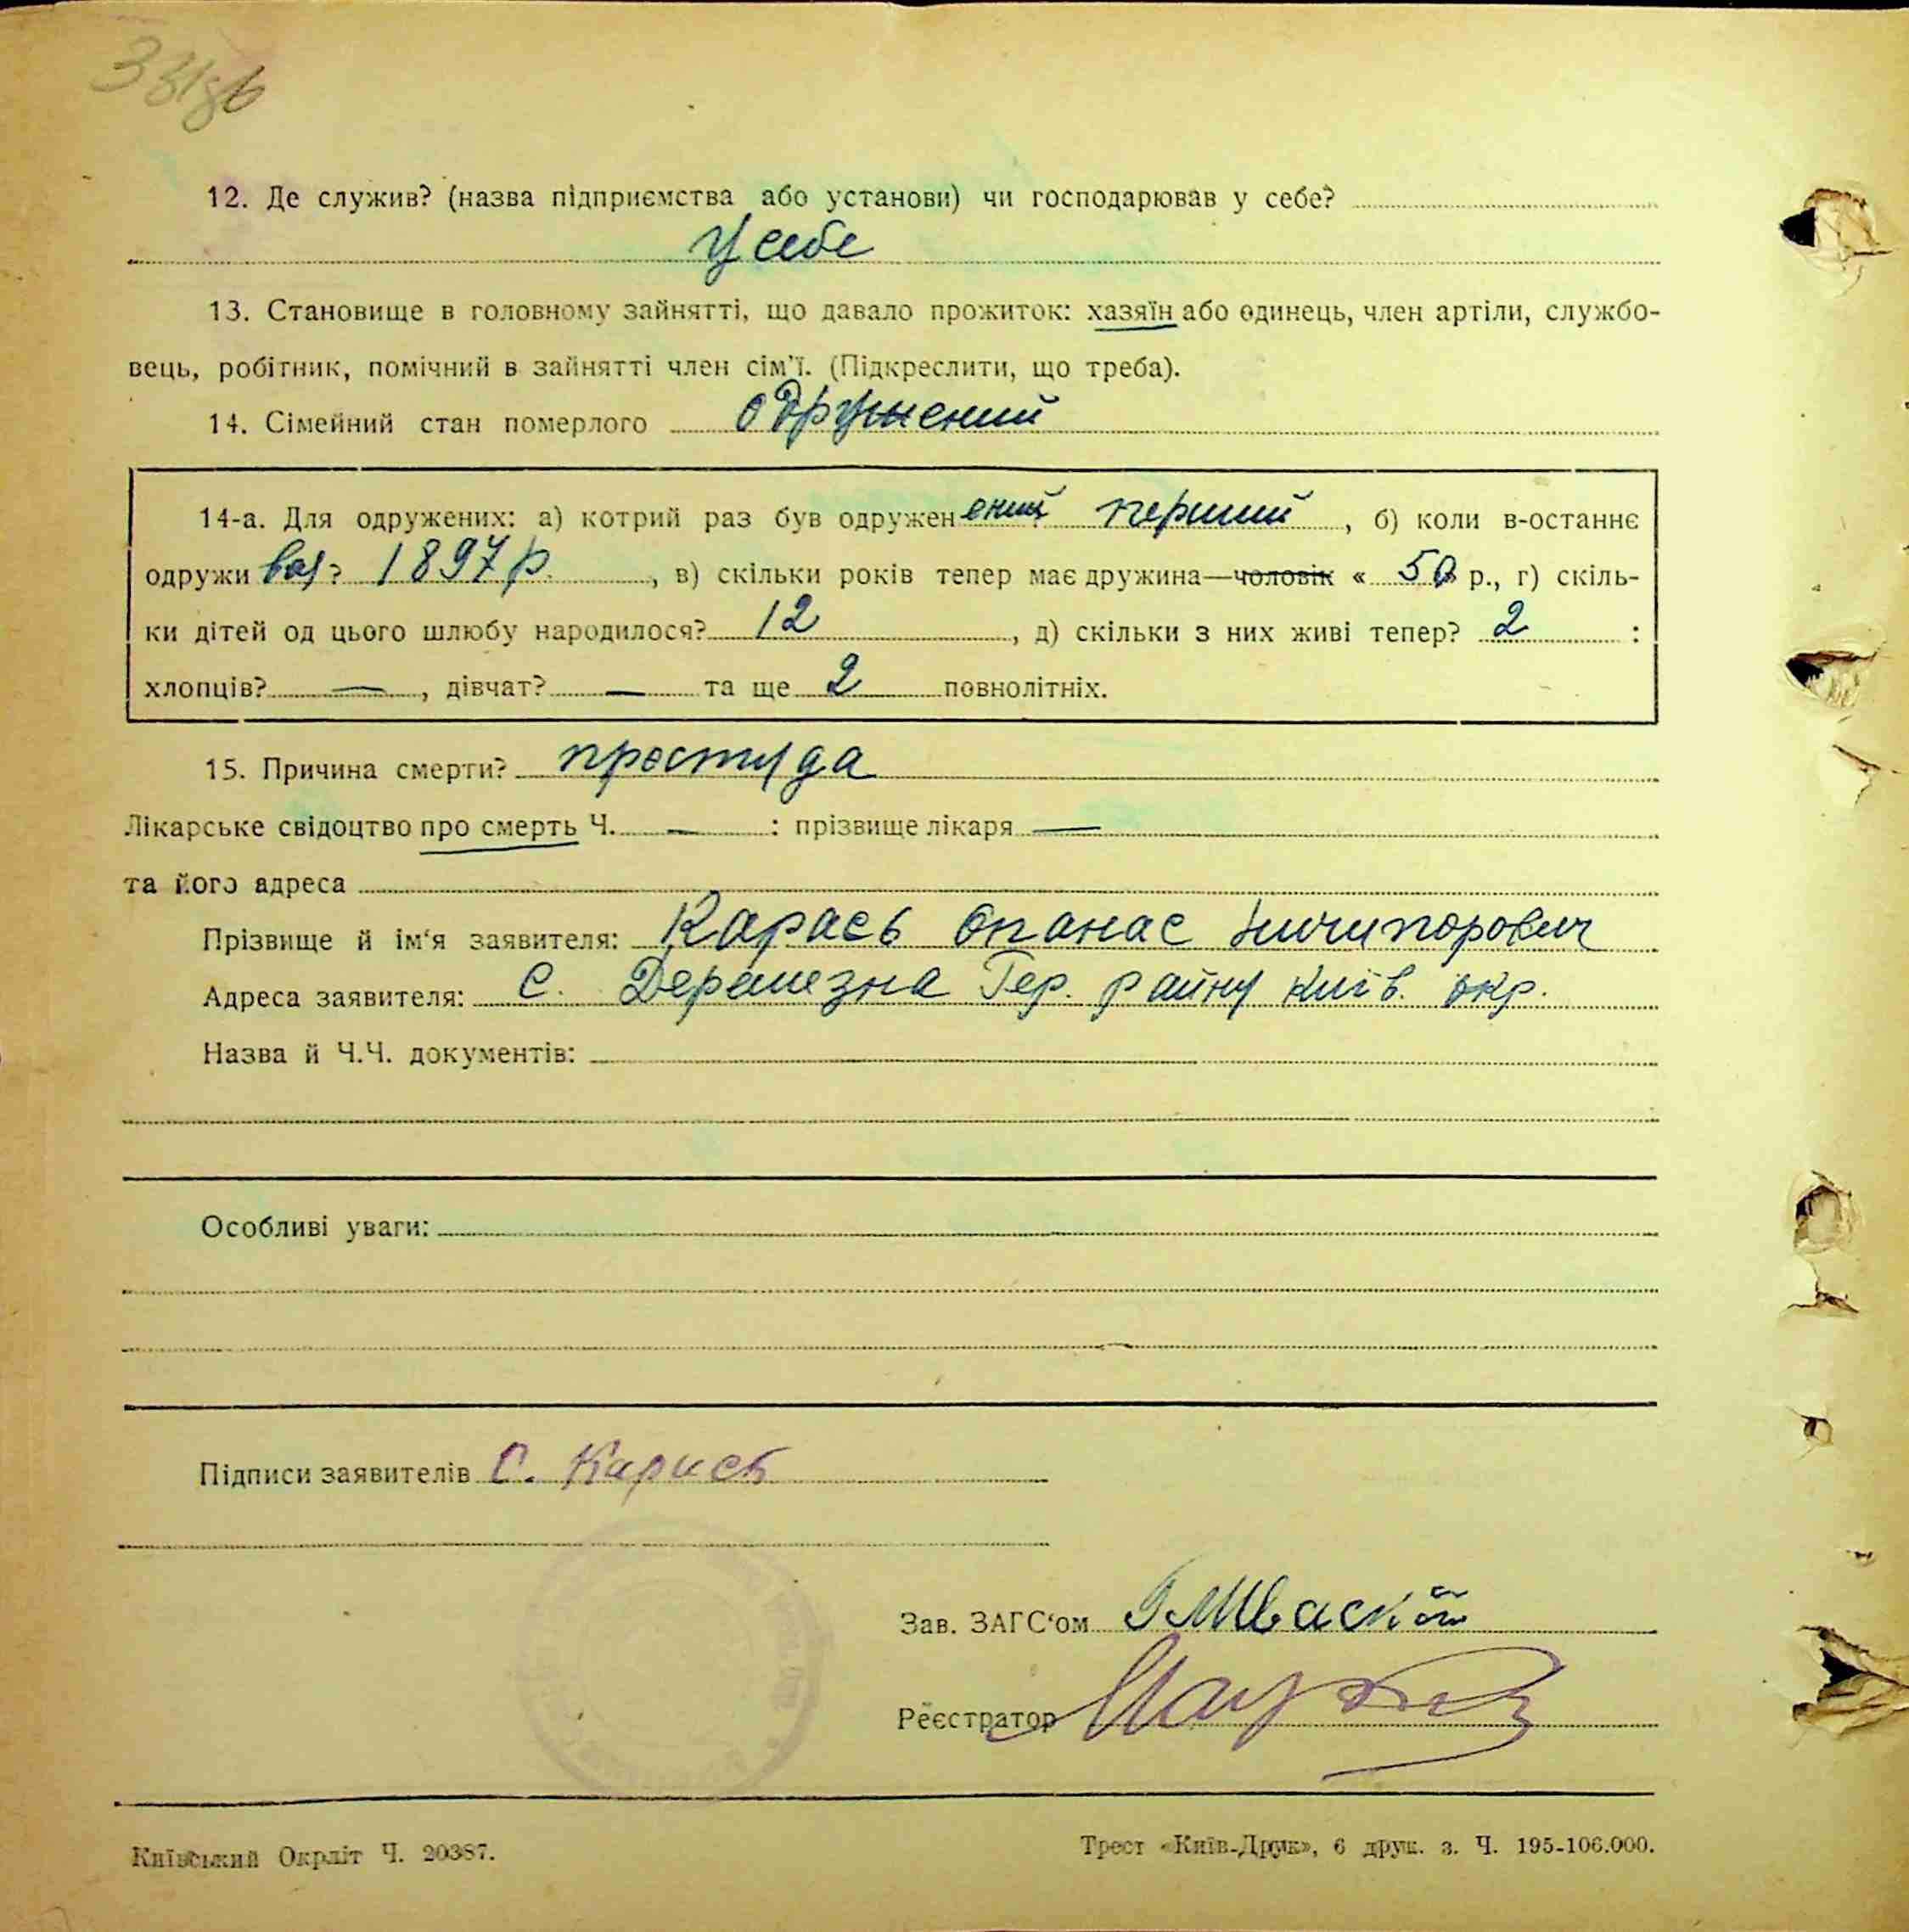 12. Де служив? (назва підприємства або установи) чи господарював у себе?
У себе
13. Становище в головному зайнятті, що давало прожиток: хазяїн або одинець, член артіли, службо-
вець, робітник, помічний в зайнятті член сім'ї. (Підкреслити, що треба).
14. Сімейний стан померлого одружений
14-а. Для одружених: а) котрий раз був одружен ений перший, б) коли в-останнє
одружи вся? 1897 р., в) скільки років тепер має дружина—чоловік « 50 р., г) скіль-
ки дітей од цього шлюбу народилося? 12, д) скільки з них живі тепер? 2 :
хлопців? —, дівчат? — та ще 2 повнолітніх.
15. Причина смерти? простуда
Лікарське свідоцтво про смерть Ч. — : прізвище лікаря —
та його адреса
Прізвище й ім'я заявителя: Карась Опанас Ничипорович
Адреса заявителя: С. Деремезна Гер. райну Київ. окр.
Назва й Ч.Ч. документів:
Особливі уваги:
Підписи заявителів О. Карась
Зав. ЗАГС'ом
Реєстратор
Київський Окрліт Ч. 20387.
Трест «Київ-Друк», 6 друк. з. Ч. 195-106.000.